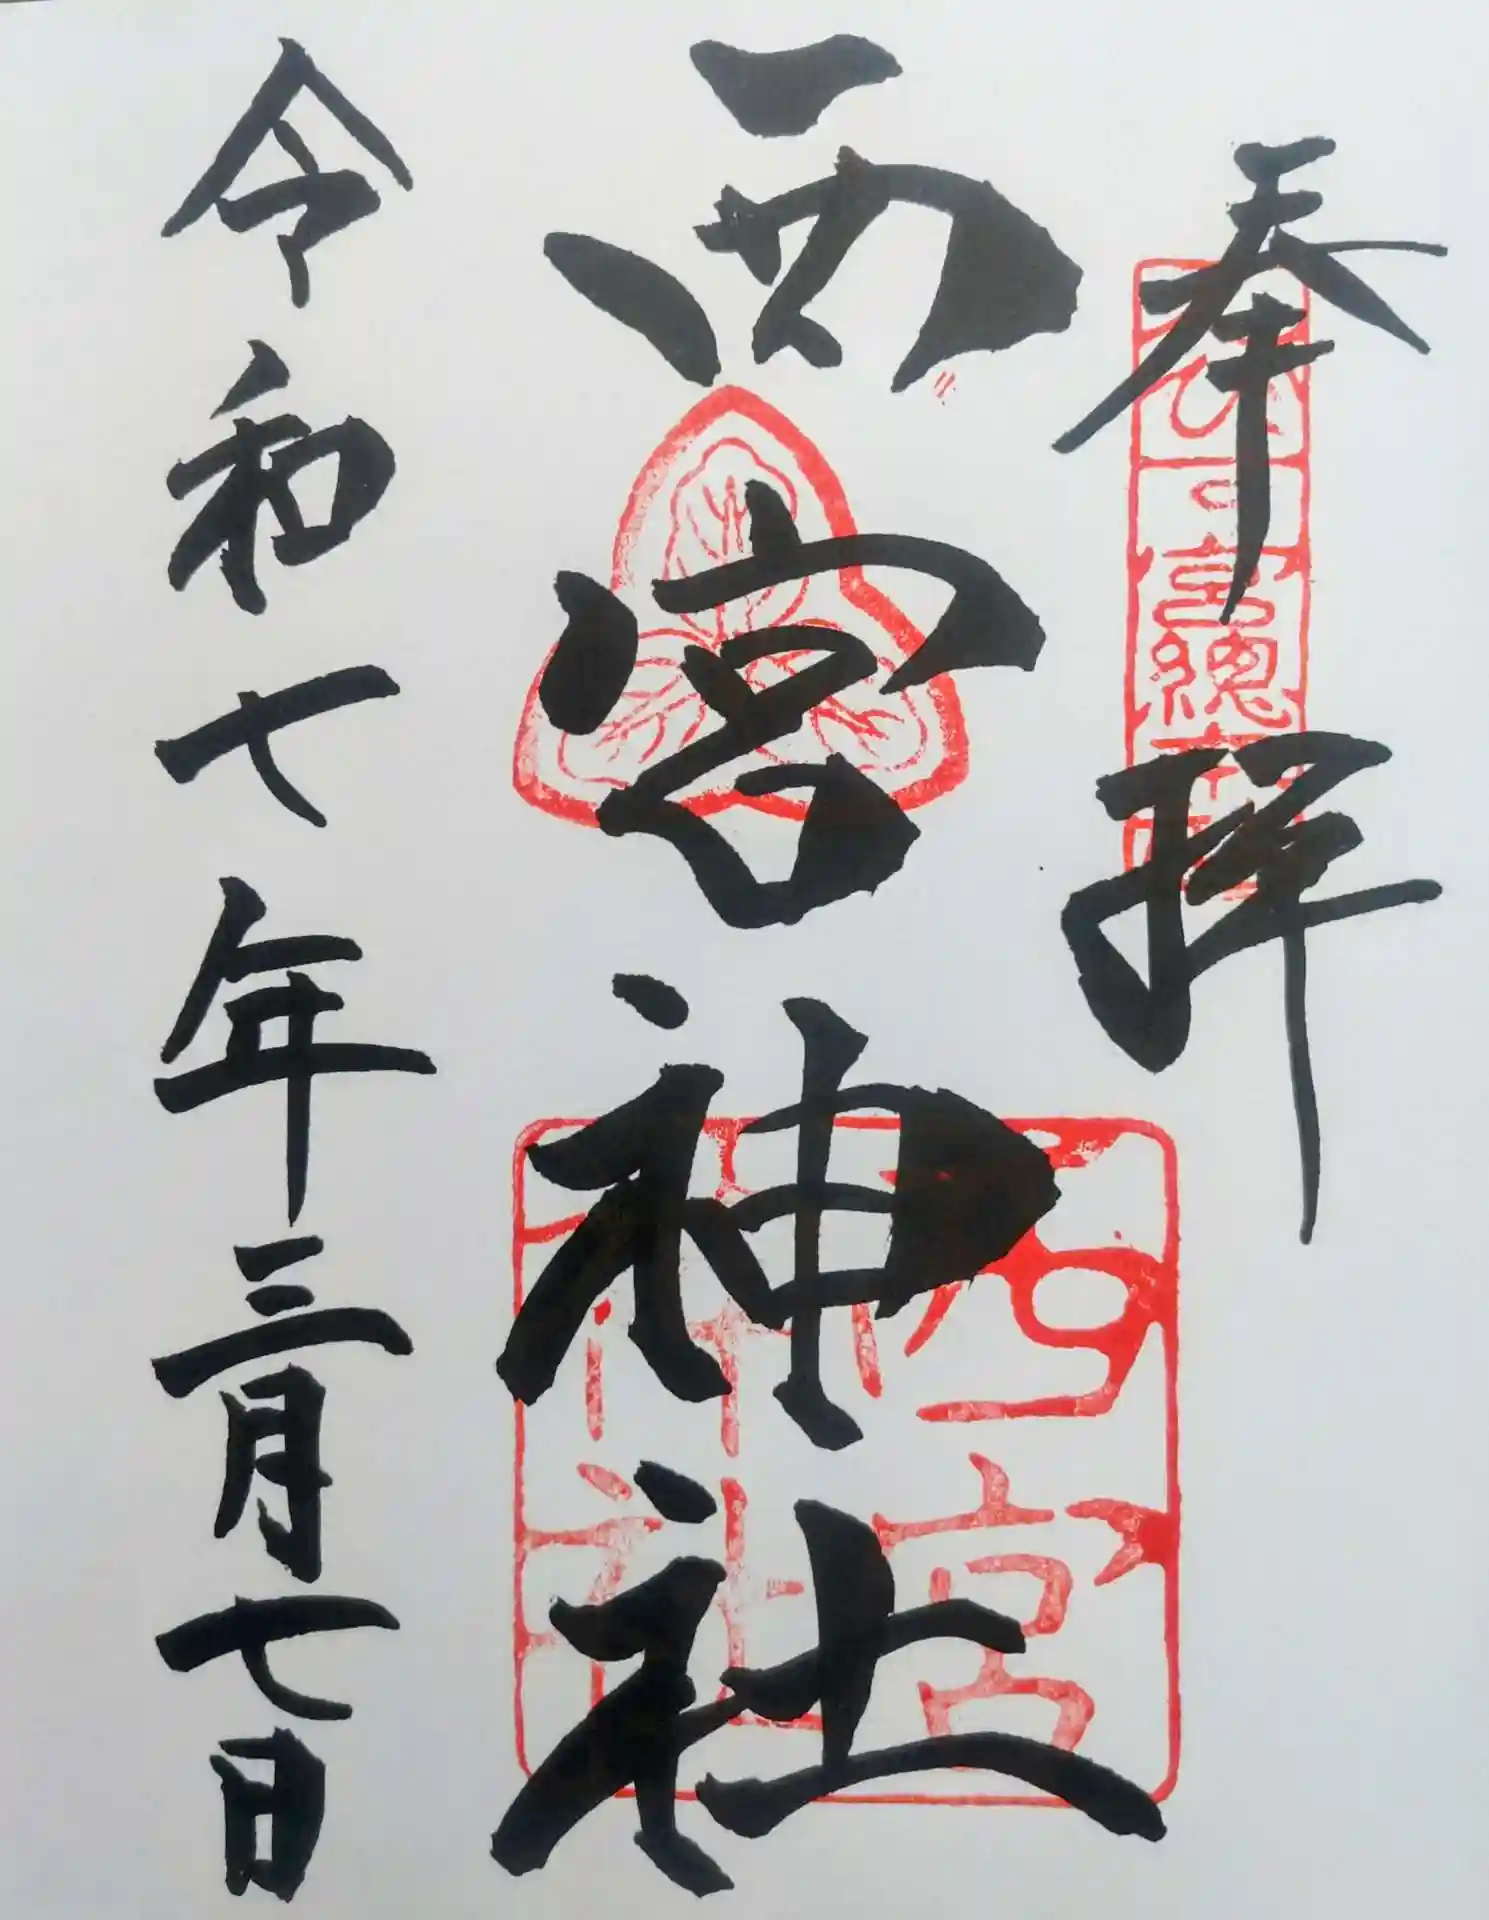 奉拝
西宮神社
令和七年三月七日
西宮神社